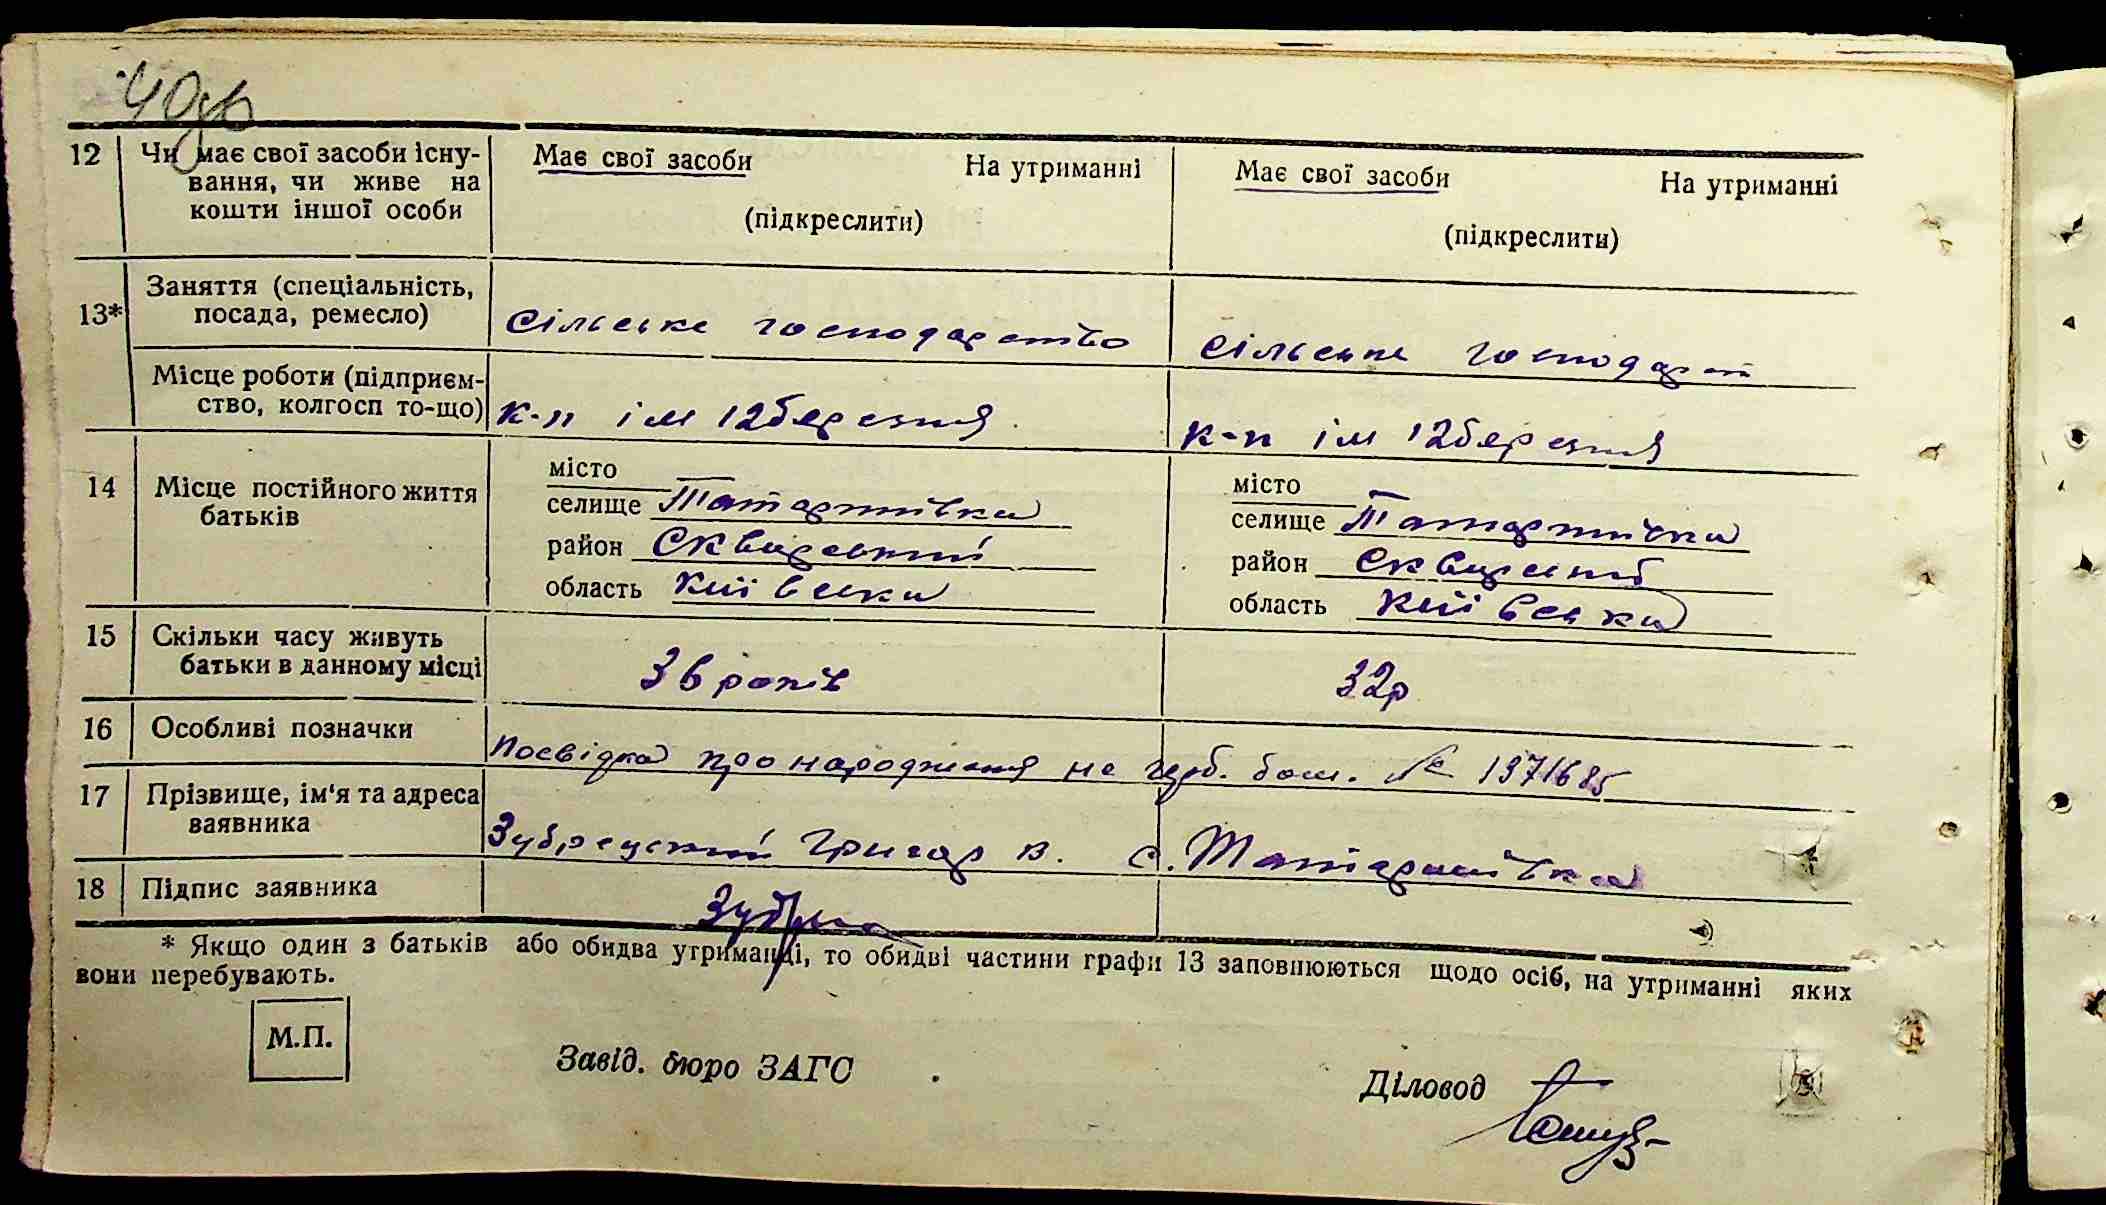 40зв
12 Чи має свої засоби існування, чи живе на кошти іншої особи Має свої засоби На утриманні (підкреслити) Має свої засоби На утриманні (підкреслити)
13* Заняття (спеціальність, посада, ремесло) Сільське господарство Сільське господарст
Місце роботи (підприємство, колгосп то-що) к-п ім 12 березня к-п ім 12 березня
14 Місце постійного життя батьків
місто місто
селище Татаринівка селище Татаринівка
район Сквирський район Сквирський
область Київська область Київська
15 Скільки часу живуть батьки в данному місці 36 років 32р
16 Особливі позначки Посвідка про народження на герб. бом. № 1371685
17 Прізвище, ім'я та адреса заявника Зубрецький Григор В. с. Татаринівка
18 Підпис заявника
* Якщо один з батьків або обидва утриманці, то обидві частини графи 13 заповнюються щодо осіб, на утриманні яких
вони перебувають.
М.П.
Завід. бюро ЗАГС Діловод